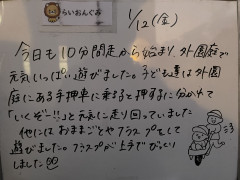 らいおんぐみ
1/12(金)
今日も10分間走から始まり、外園庭で
元気いっぱい遊びました。子ども達は外園
庭にある手押車に乗ると押すに分かれて
「いくぞー!!」と元気に走り回っていました
他にはおままごとやフラフープをして
遊びました。フラフープが上手でびっくり
しました